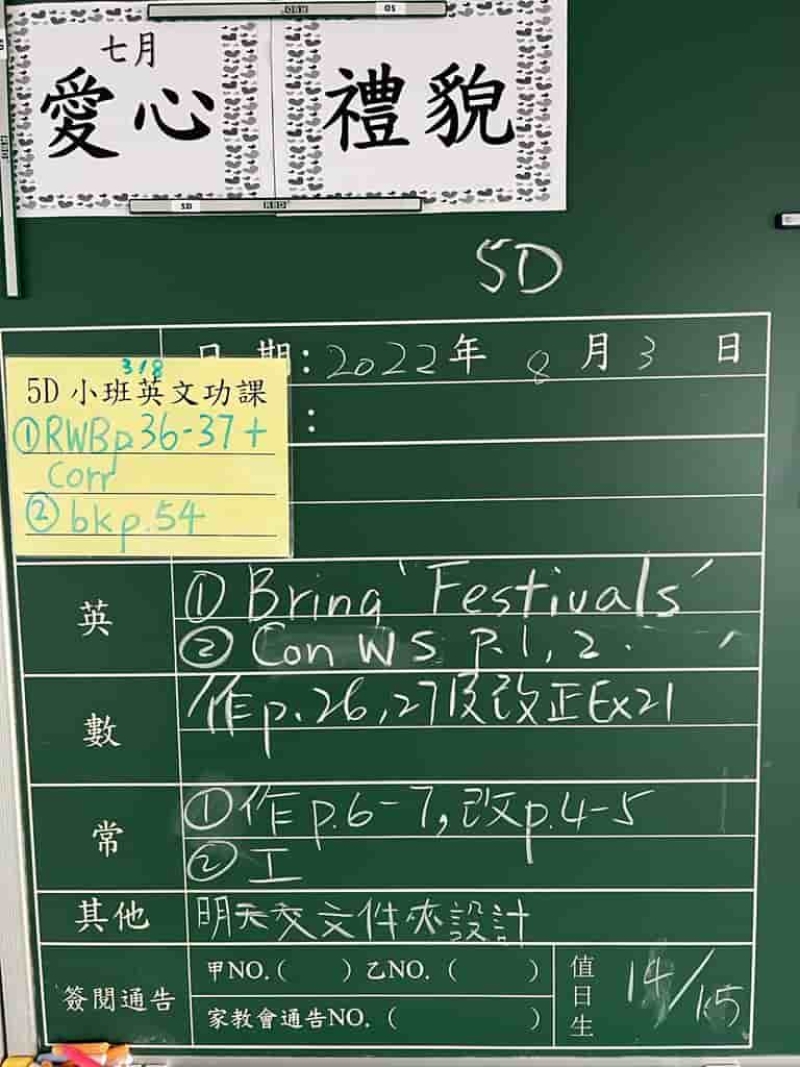 七月
愛心
禮貌
5D
日期：2022年8月3日
3/8
5D 小班英文功課
①RWBp.36-37+
Corr
②bkp.54
：
英
①Bring 'Festivals'
②Con WS P.1, 2.
數
作p.26,27及改正Ex21
常
①作p.6-7,改p.4-5
②工
其他
明天交文件夾設計
簽閱通告
甲NO.( ) 乙NO. ( )
家教會通告NO. ( )
值日生
14/15